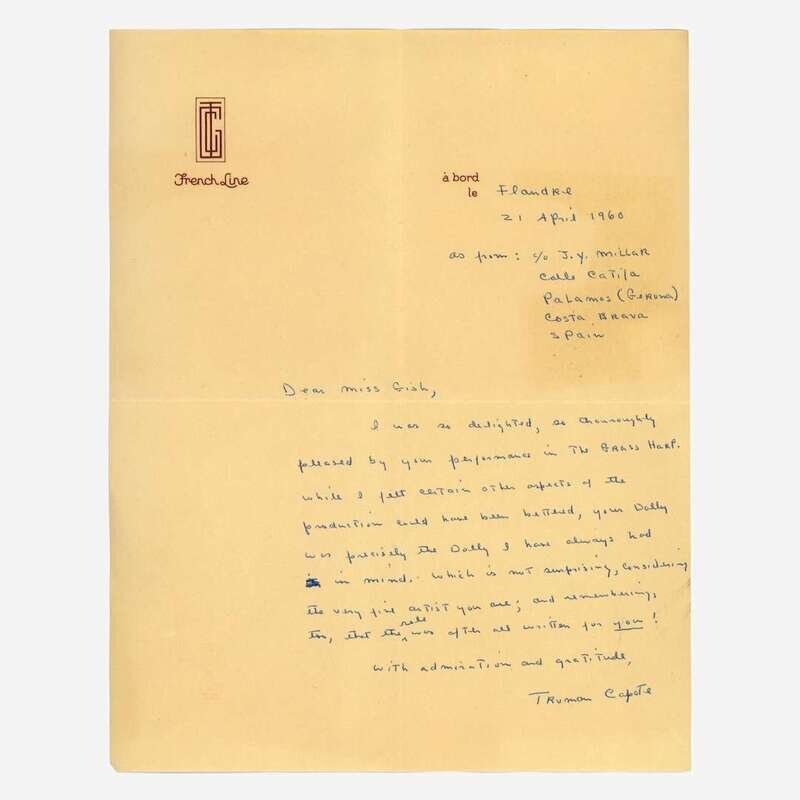 CGT
French Line
à bord
le Flandre
21 April 1960
as from: c/o J.Y. Millar
Calle Catifa
Palamos (Gerona)
Costa Brava
Spain
Dear Miss Gish,
I was so delighted, so thouroughly
pleased by your performance in The Grass Harp.
While I felt certain other aspects of the
production could have been bettered, your Dolly
was precisely the Dolly I have always had
in mind. Which is not surprising, considering
the very fine artist you are; and remembering,
too, that the role was after all written for you!
With admiration and gratitude,
Truman Capote